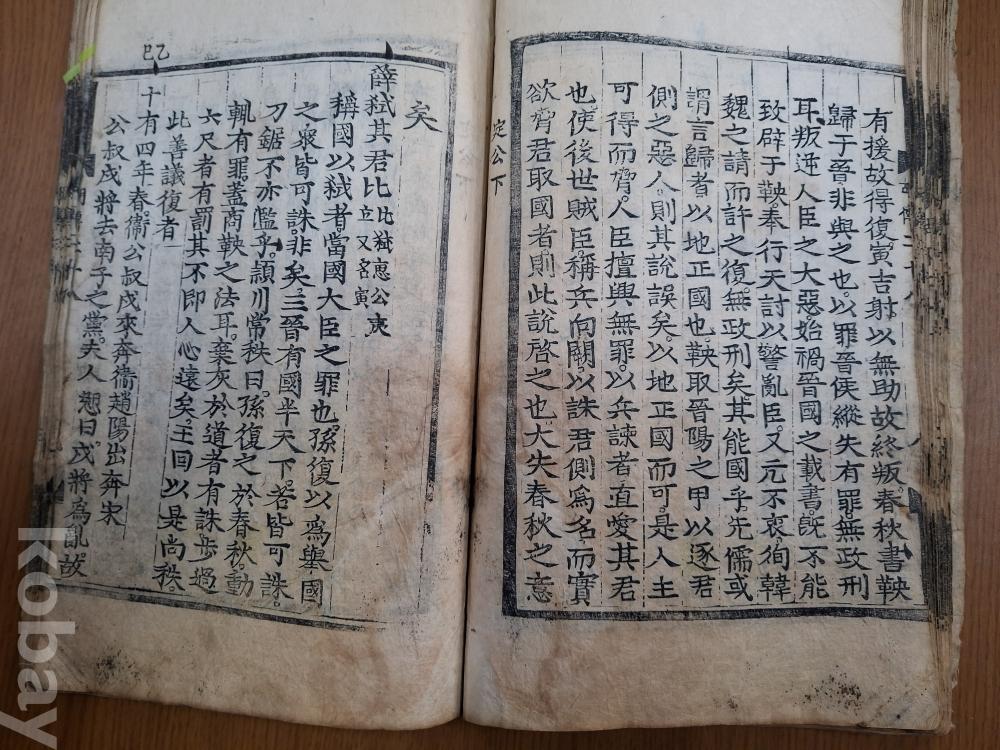 有援故得復寅吉射以無助故終叛春秋書鞅
歸于晉非與之也以罪晉侯縱失有罪無政刑
耳叛逆人臣之大惡始禍晉國之載書旣不能
致辟于鞅奉行天討以警亂臣又元不衷徇韓
魏之請而許之復無政刑矣其能國乎先儒或
謂言歸者以地正國也鞅取晉陽之甲以逐君
側之惡人則其說誤矣以地正國而可是人主
可得而脅人臣擅興無罪以兵諫者直愛其君
也使後世賊臣稱兵向闕以誅君側爲名而實
欲脅君取國者則此說啓之也大失春秋之意
定公下
矣
薛弑其君比 比益惠公夷
立又名寅
稱國以弑者當國大臣之罪也孫復以爲舉國
之衆皆可誅非矣三晉有國半天下若皆可誅
刀鋸不亦濫乎潁川常秩曰孫復之於春秋動
輒有罪盖商鞅之法耳棄灰於道者有誅步過
六尺者有罰其不即人心遠矣王回以是尚秩
此善議復者
乙巳
十有四年春衞公叔戌來奔衞趙陽出奔宋
公叔戌將去南子之黨夫人愬曰戌將爲亂故
kobay